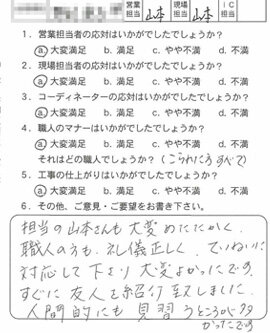 営業担当 山本 現場担当 山本 IC担当
1. 営業担当者の応対はいかがでしたでしょうか？
a. 大変満足 b. 満足 c. やや不満 d. 不満
2. 現場担当者の応対はいかがでしたでしょうか？
a. 大変満足 b. 満足 c. やや不満 d. 不満
3. コーディネーターの応対はいかがでしたでしょうか？
a. 大変満足 b. 満足 c. やや不満 d. 不満
4. 職人のマナーはいかがでしたでしょうか？
a. 大変満足 b. 満足 c. やや不満 d. 不満
それはどの職人でしょうか？（こられた すべて）
5. 工事の仕上がりはいかがでしたでしょうか？
a. 大変満足 b. 満足 c. やや不満 d. 不満
6. その他、ご意見・ご要望をお書き下さい。
担当の山本さんも大変
職人の方も、礼儀正しく、ていねいに
対応して下さり大変よかったです。
すぐに友人を紹介致しました。
人間的にも見習うところが多
かったです